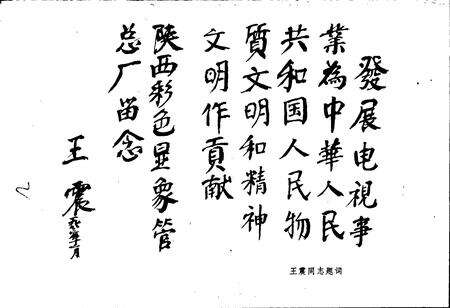 發展电視事
業為中華人民
共和国人民物
質文明和精神
文明作貢献
陝西彩色显象管
总厂留念
王震
王震同志题词